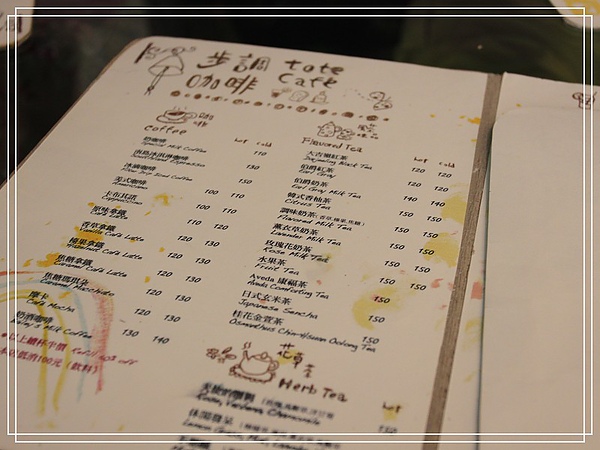 步調 tote
咖啡 Cafe
咖啡
Coffee
Hot Cold
奶咖啡
Special Milk Coffee 110
南島冰淇淋咖啡
130
冰滴咖啡
Slow Drip Iced Coffee 150
美式咖啡
Americano 100 110
卡布其諾
Cappuccino 100 110
原味拿鐵
Cafe Latte 110 120
香草拿鐵
Vanilla Cafe Latte 120 130
榛果拿鐵
Hazelnut Cafe Latte 120 130
焦糖拿鐵
Caramel Cafe Latte 120 130
焦糖瑪琪朵
Caramel Macchiato 120 130
摩卡
Cafe Mocha 120 130
奶酒咖啡
Bailey's Milk Coffee 130 140
以上續杯半價
Flavored Tea
Hot Cold
大吉嶺紅茶
Darjeeling Black Tea 120 120
伯爵紅茶
Earl Gray 120 120
伯爵奶茶
Earl Gray Milk Tea 140 140
韓式香柚茶
Citrus Tea 150 150
調味奶茶
Flavored Milk Tea 150 150
薰衣草奶茶
Lavender Milk Tea 150 150
玫瑰花奶茶
Rose Milk Tea 150 150
水果茶
Fruit Tea 150 150
Aveda 康福茶
Aveda Comforting Tea 150
日式玄米茶
Japanese Sencha 150
桂花金萱茶
Osmanthus Chin-Hsuan Oolong Tea 150
花草茶
Herb Tea
Hot
150